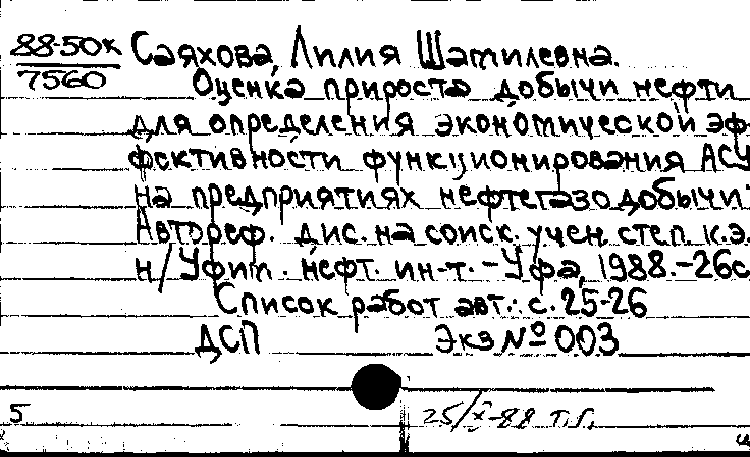 88-50к Саяхова, Лилия Шамилевна.
7560 Оценка прироста добычи нефти
для определения экономической эф-
фективности функционирования АСУ
на предприятиях нефтегазодобычи:
Автореф. дис. на соиск. учен. степ. к.э.
н/Уфим. нефт. ин-т. - Уфа, 1988.-26с
Список работ авт.: с. 25-26
ДСП Экз № 003
5 25/X-88 т.г.